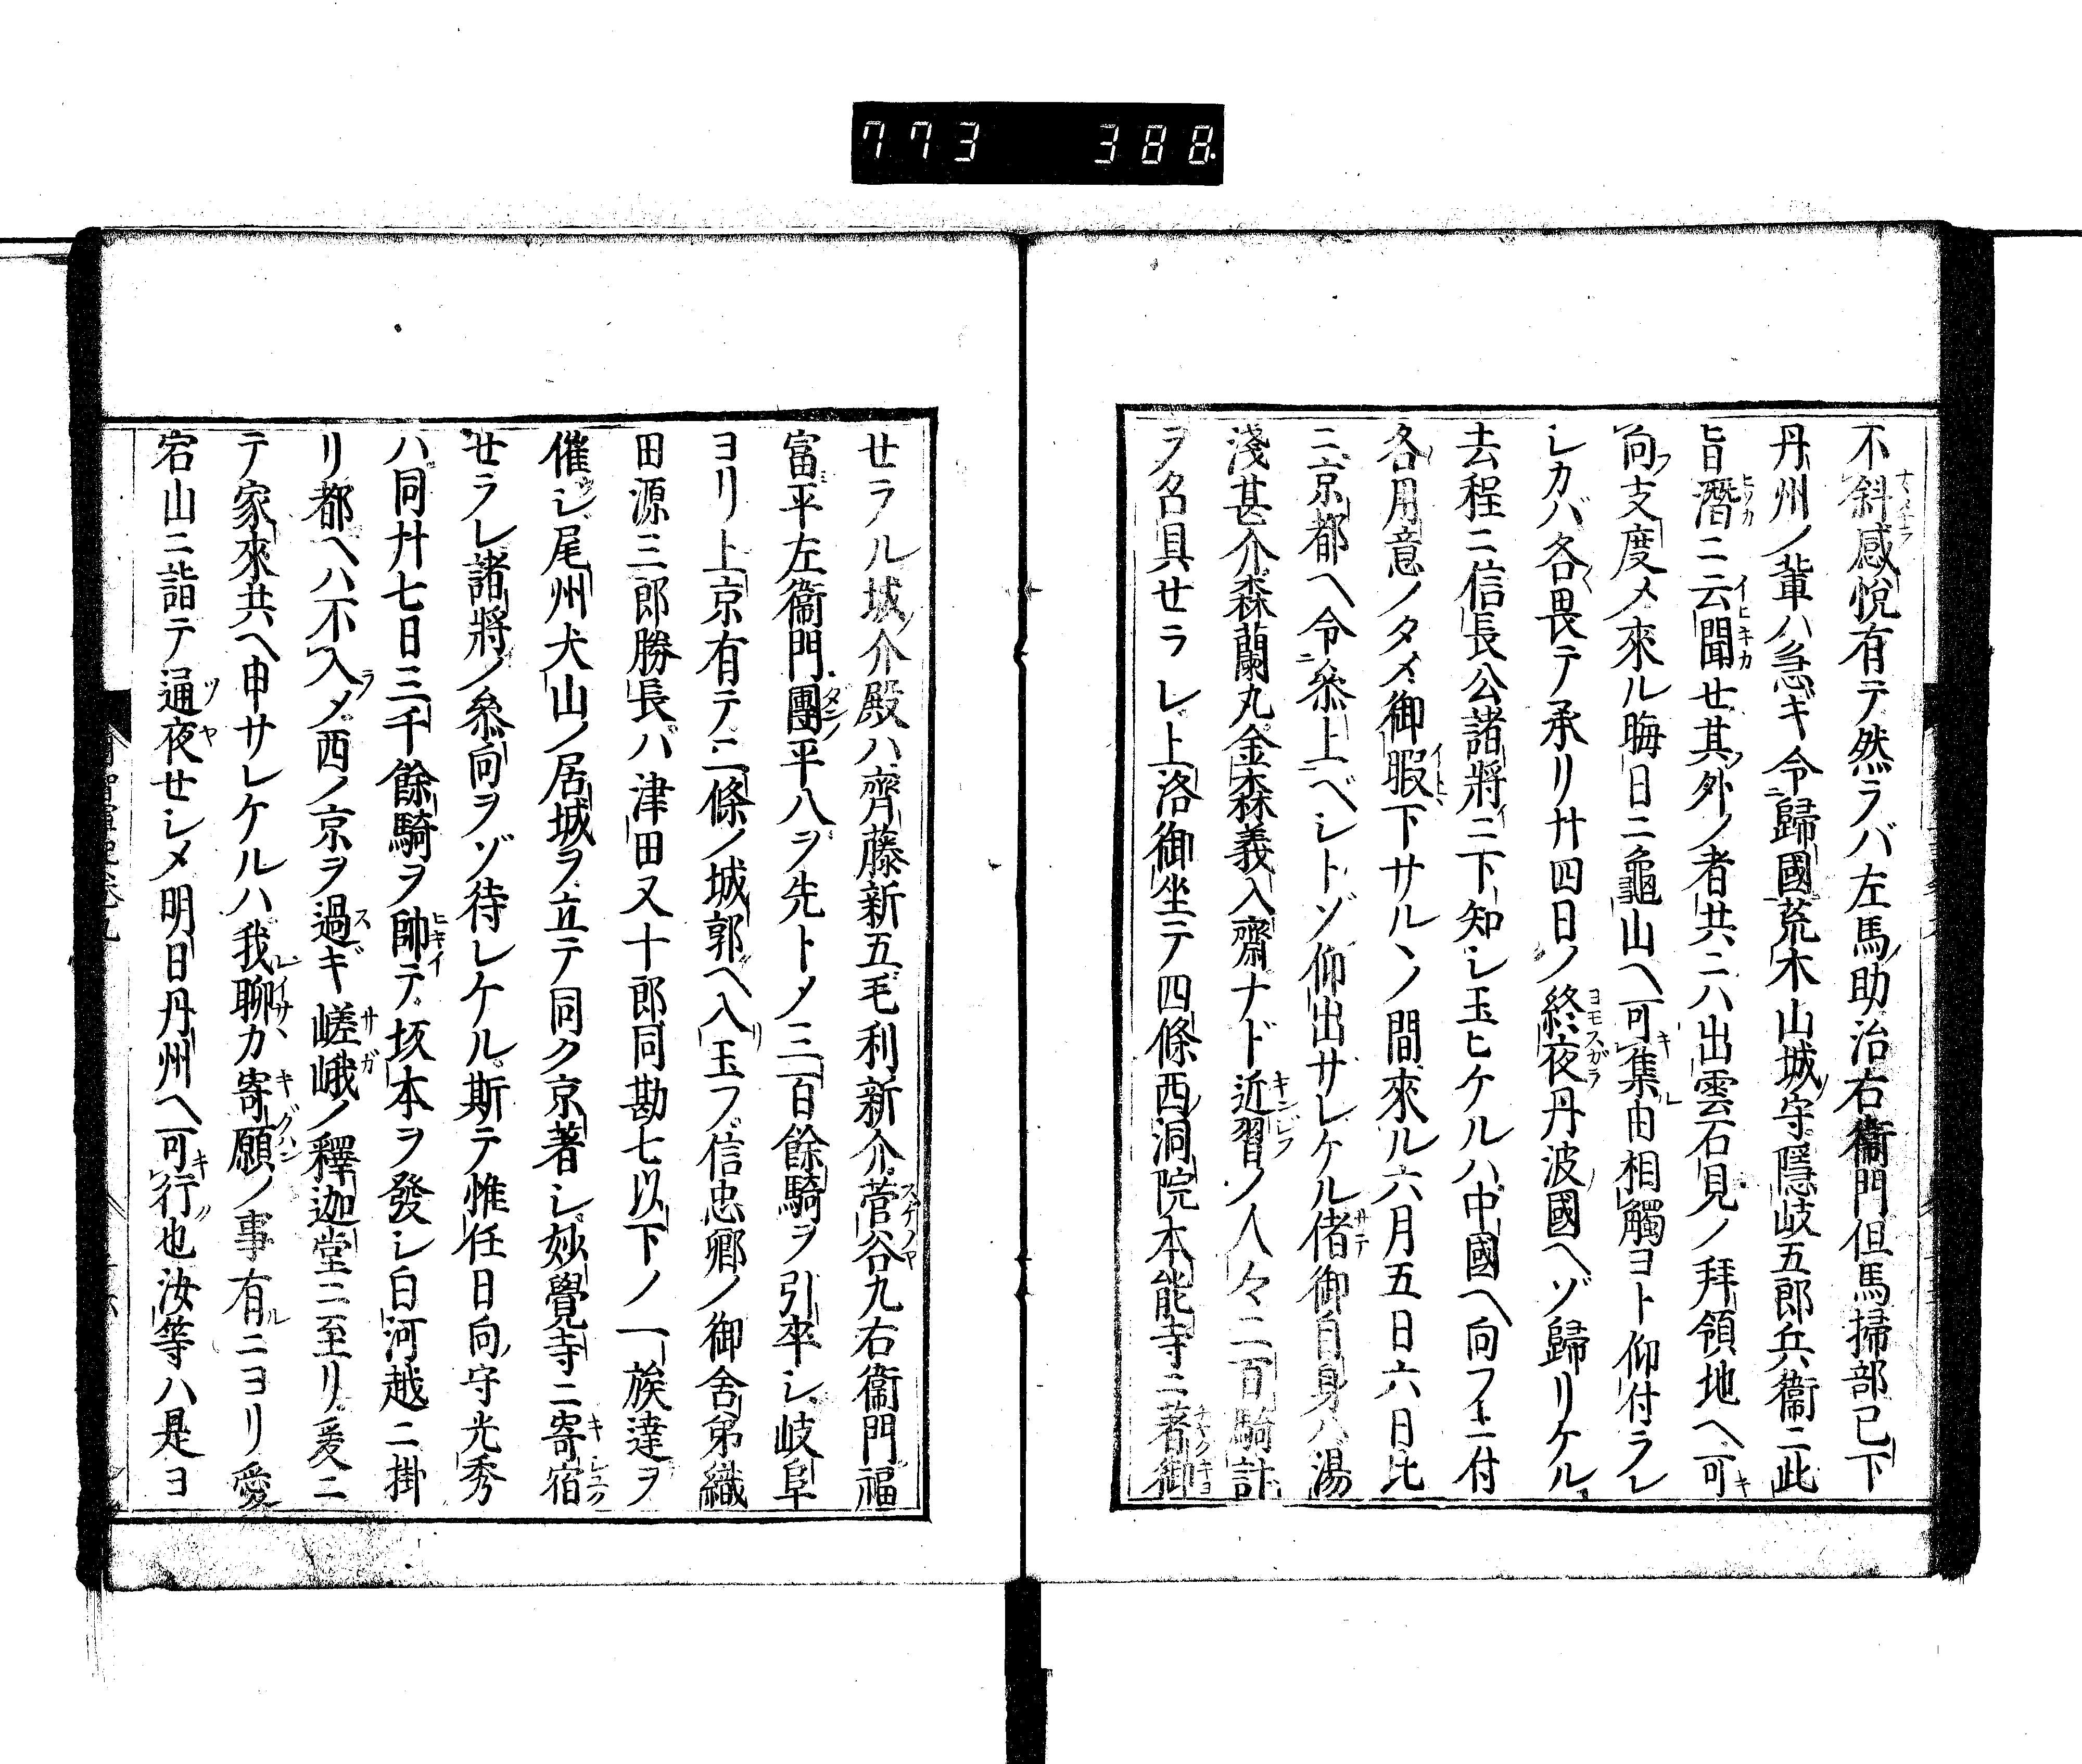 773 388
不斜感悦有テ然ラバ左馬助治右衞門但馬掃部已下
丹州ノ輩ハ急キ令歸國荒木山城守隱岐五郎兵衞ニ此
旨潛ニ云聞セ其外ノ者共ニハ出雲石見ノ拜領地ヘ可
向支度メ來ル晦日ニ龜山ヘ可集由相觸ヨト仰付ラレ
シカバ各畏テ承リ廿四日ノ終夜丹波國ヘゾ歸リケル
去程ニ信長公諸將ニ下知シ玉ヒケルハ中國ヘ向フニ付
各用意ノタメ御暇下サルヽノ間來ル六月五日六日比
ニ京都ヘ令參上ベシトゾ仰出サレケル偖御自身ハ湯
淺甚介森蘭丸金森義入齋ナド近習ノ人々二百騎計
ヲ召具セラレ上洛御坐テ四條西洞院本能寺ニ著御
セラル城介殿ハ齊藤新五毛利新介菅谷九右衞門福
富平左衞門團平八ヲ先トメ三百餘騎ヲ引卒シ岐阜
ヨリ上京有テ二條ノ城郭ヘ入玉フ信忠卿ノ御舍弟織
田源三郎勝長ハ津田又十郎同勘七以下ノ一族達ヲ
催シ尾州犬山ノ居城ヲ立テ同ク京著シ妙覺寺ニ寄宿
セラレ諸將ノ參向ヲゾ待レケル斯テ惟任日向守光秀
ハ同廿七日三千餘騎ヲ帥テ坂本ヲ發シ白河越ニ掛
リ都ヘハ不入メ西ノ京ヲ過ギ嵯峨ノ釋迦堂ニ至リ爰ニ
テ家來共ヘ申サレケルハ我聊カ寄願ノ事有ニヨリ愛
宕山ニ詣テ通夜セシメ明日丹州ヘ可行也汝等ハ是ヨ